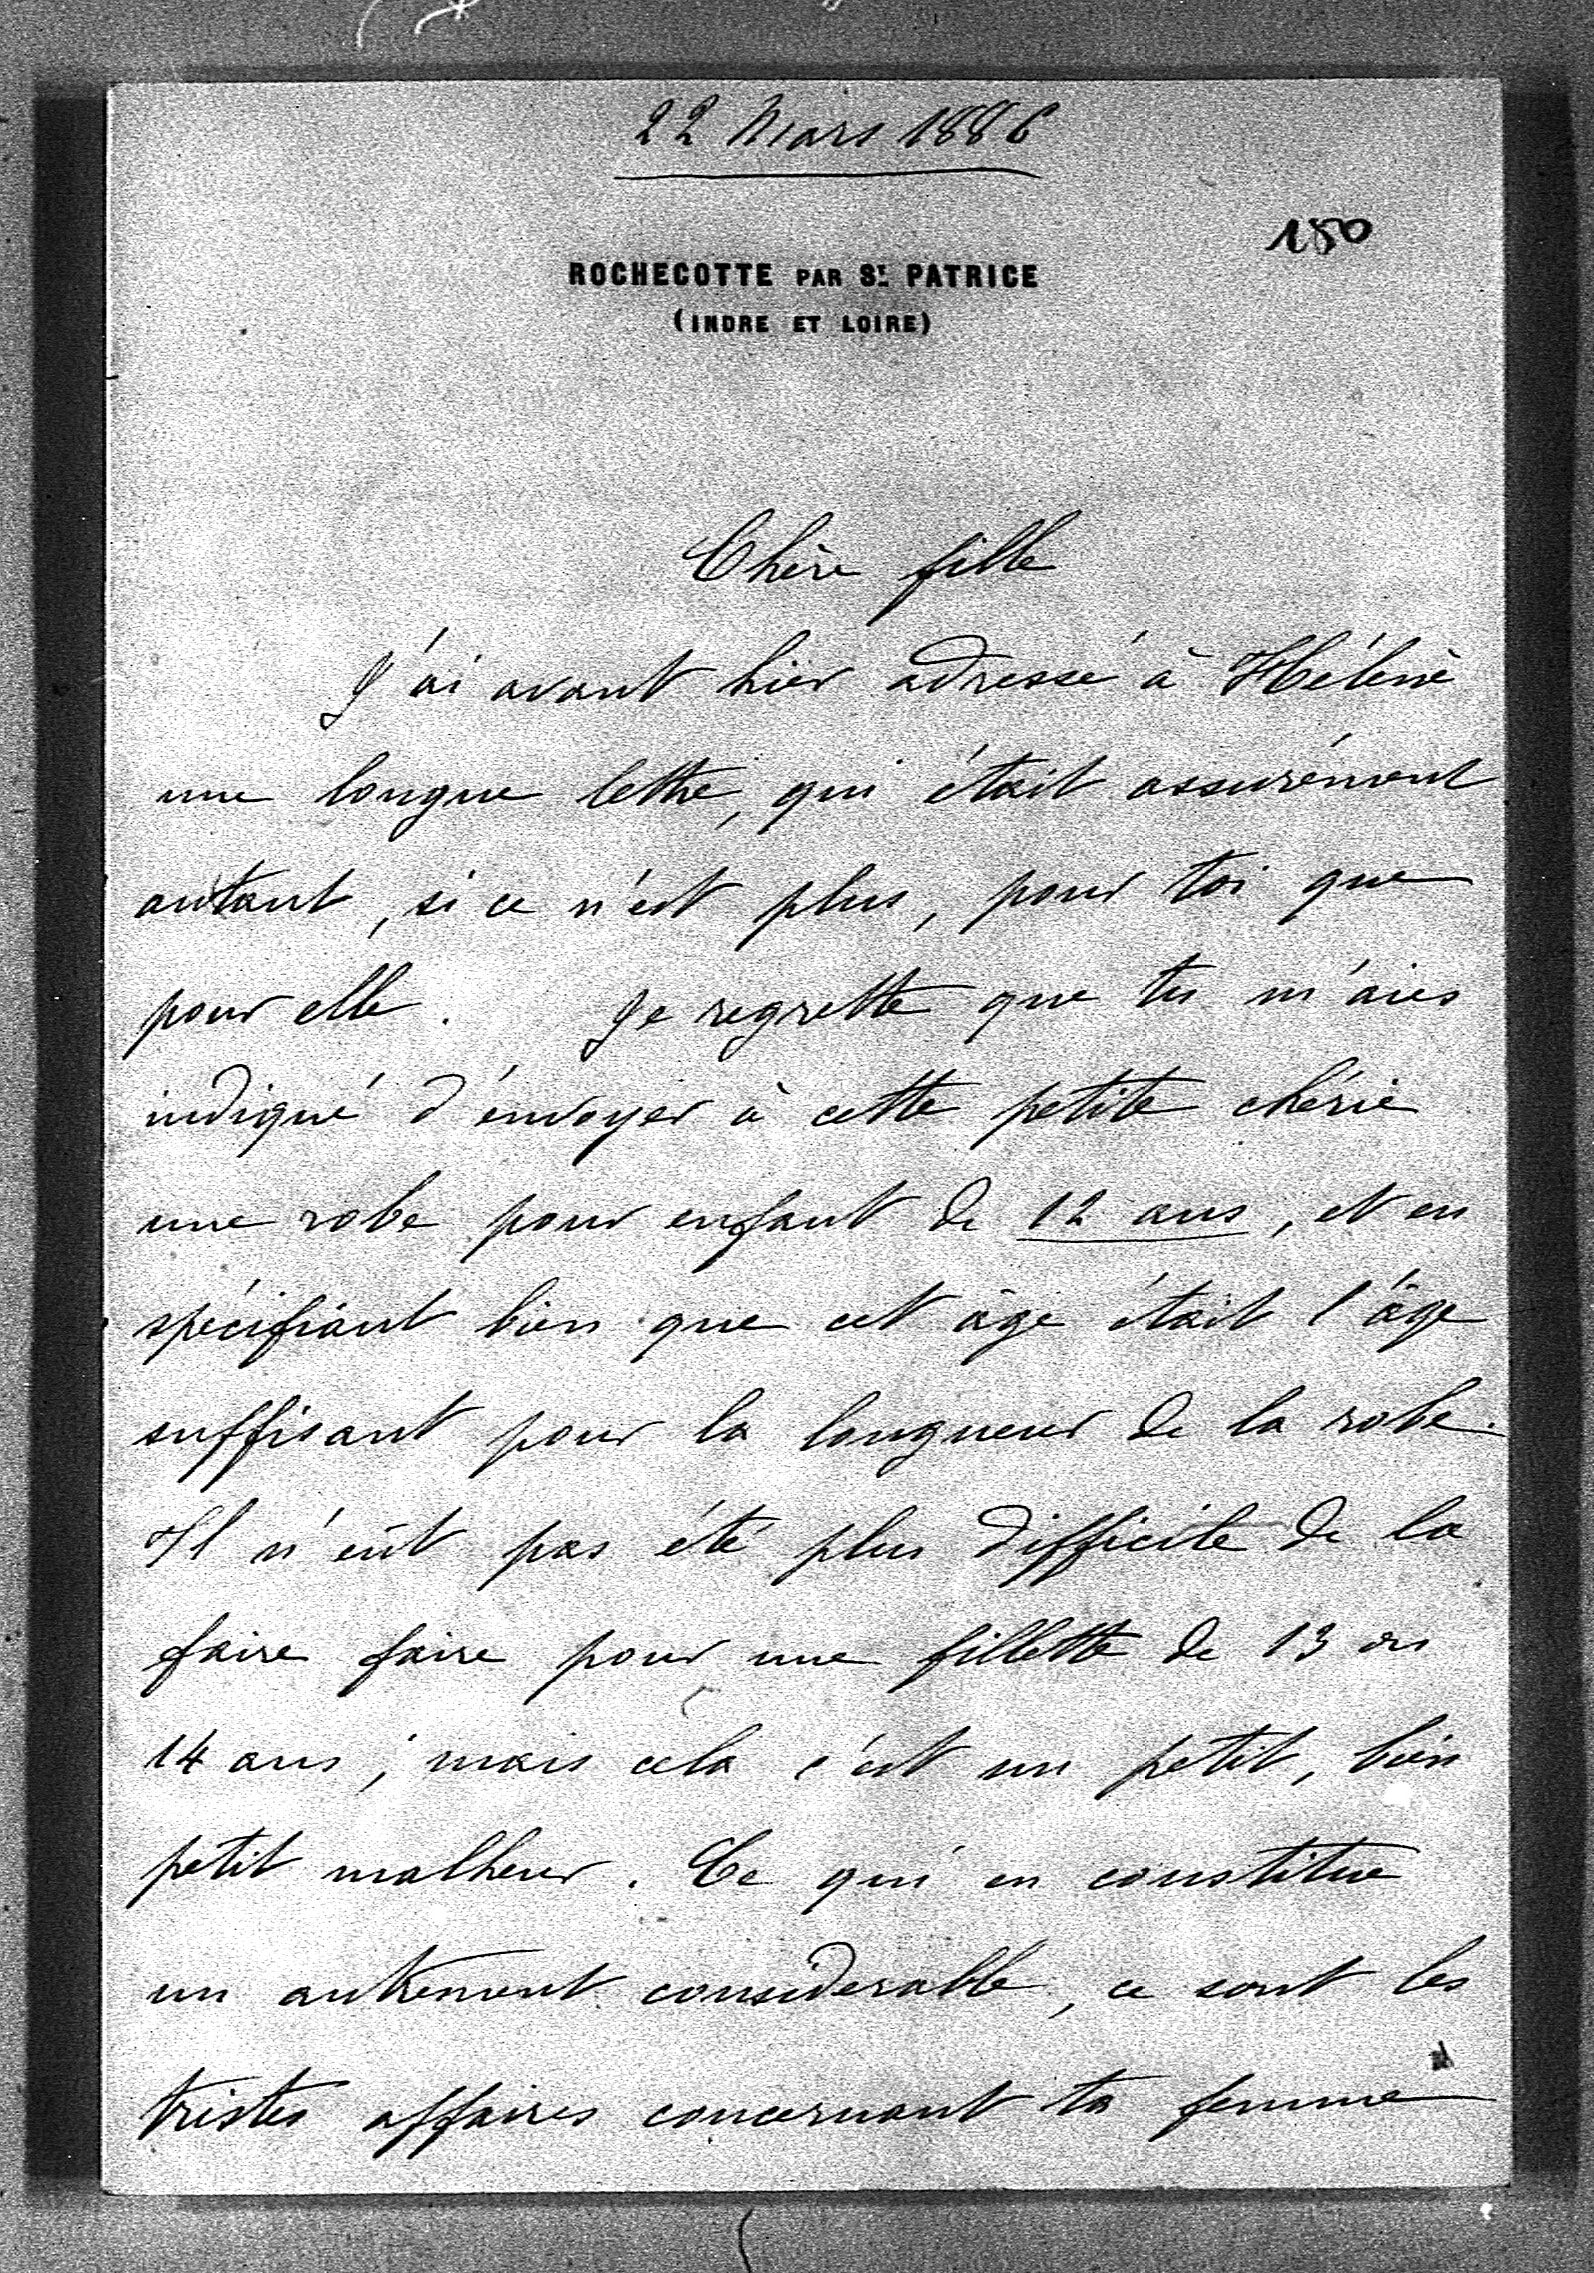 22 Mars 1886
180
ROCHECOTTE PAR St. PATRICE
(INDRE ET LOIRE)
Chère fille
J'ai avant hier adressé à Hélène
une longue lettre, qui était assurément
autant, si ce n'est plus, pour toi que
pour elle. Je regrette que tu m'aies
indiqué d'envoyer à cette petite chérie
une robe pour enfant de 12 ans, et en
spécifiant bien que cet âge était l'âge
suffisant pour la longueur de la robe.
Il n'eût pas été plus difficile de la
faire faire pour une fillette de 13 ou
14 ans ; mais cela c'est un petit, bien
petit malheur. Ce qui en constitue
un autrement considerable, ce sont les
tristes affaires concernant ta femme